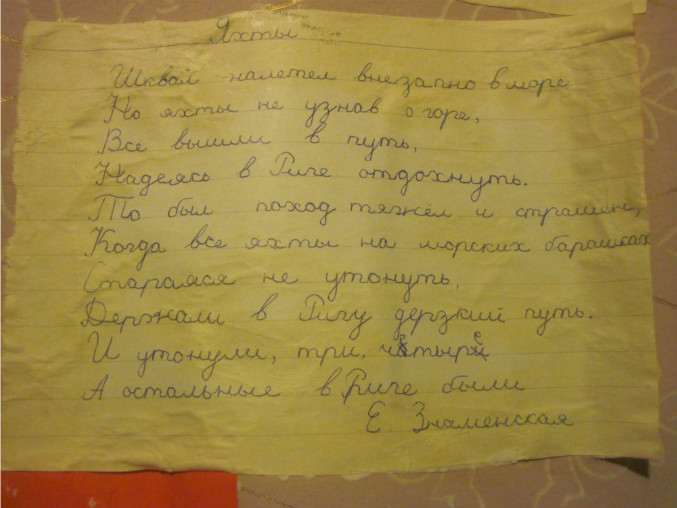 Яхты
Шквал налетел внезапно в море
Но яхты не узнав о горе,
Все вышли в путь,
Надеясь в Риге отдохнуть.
То был поход тяжел и страшен,
Когда все яхты на морских барашках
Стараяся не утонуть,
Держали в Ригу дерзкий путь.
И утонули, три, четыре
А остальные в Риге были
Е. Знаменская